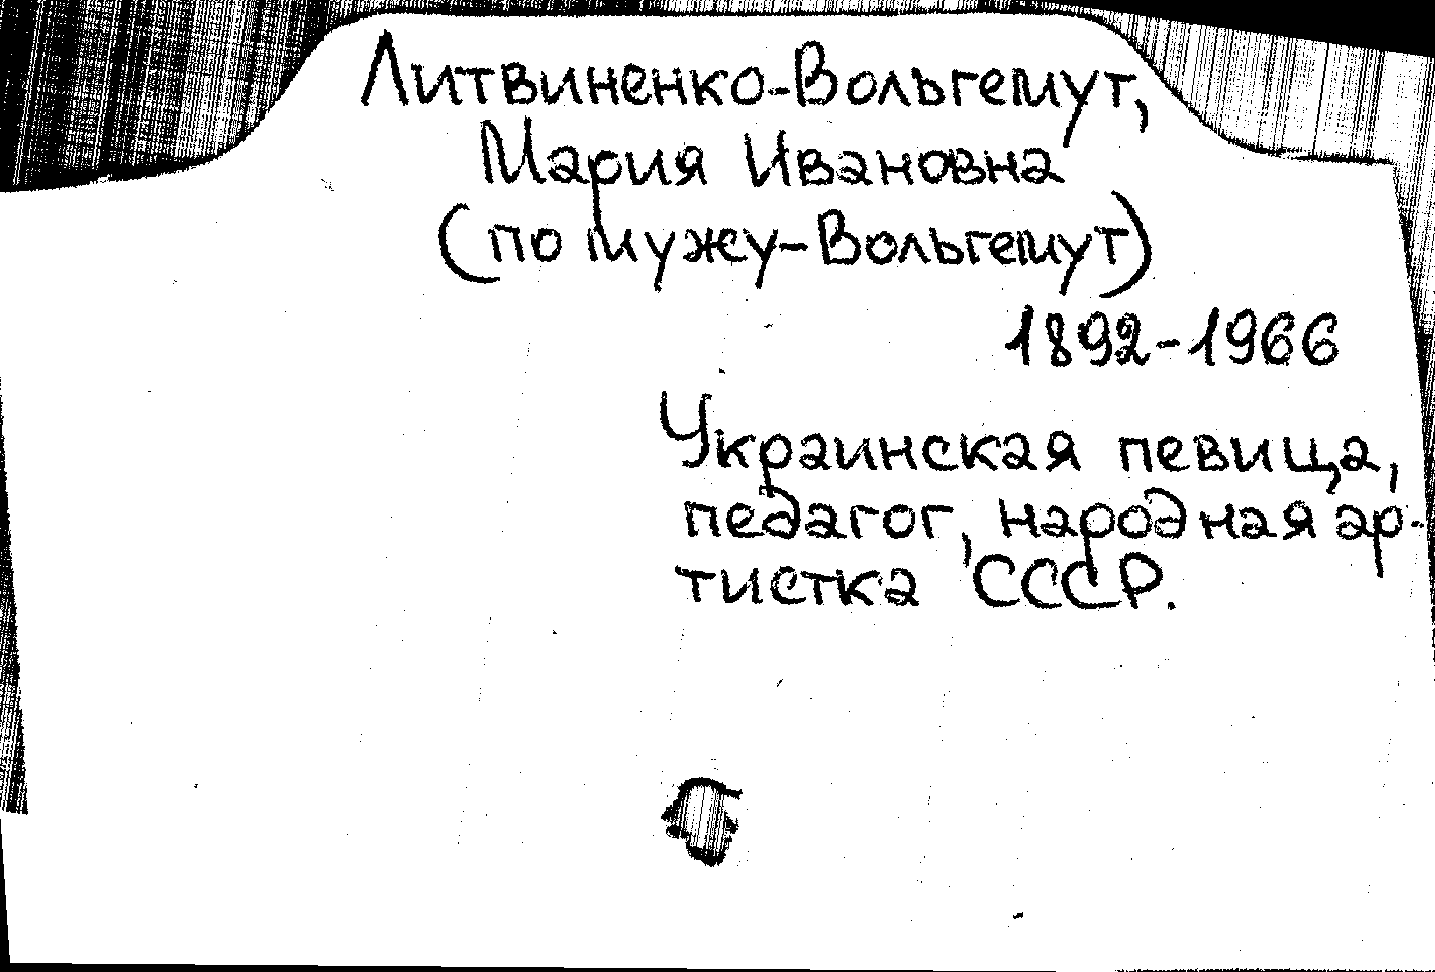 Литвиненко-Вольгемут,
Мария Ивановна
(по мужу-Вольгемут)
1892-1966
Украинская певица,
педагог, народная ар-
тистка СССР.